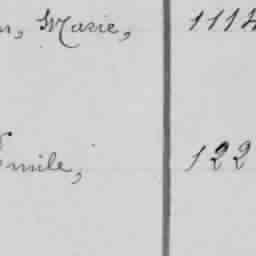 n, Marie, 1114
Emile, 122